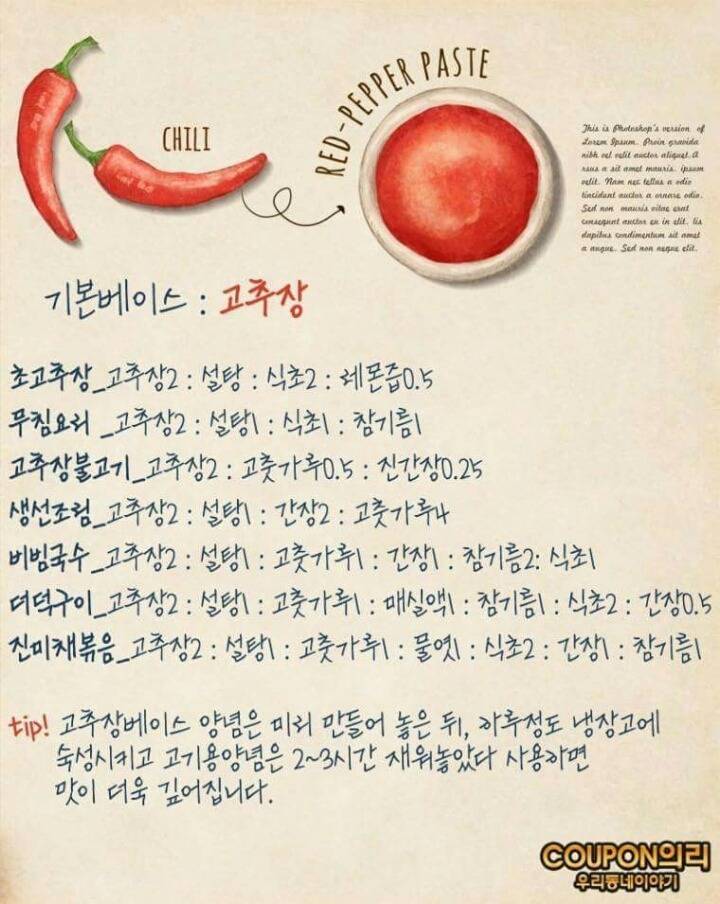 CHILI
RED-PEPPER PASTE
This is Photoshop's version of
Lorem Ipsum. Proin gravida
nibh vel velit auctor aliquet. A
nsus a sit amet mauris. ipsum
velit. Nam nec tellus a odio
tincidunt auctor a ornare odio.
Sed non mauris vitae erat
consequat auctor eu in elit.
dapibus condimentum sit amet
a augue. Sed non neque elit.
기본베이스 : 고추장
초고추장_고추장2 : 설탕 : 식초2 : 레몬즙0.5
무침요리 _고추장2 : 설탕1 : 식초1 : 참기름1
고추장불고기_고추장2 : 고춧가루0.5 : 진간장0.25
생선조림_고추장2 : 설탕1 : 간장2 : 고춧가루4
비빔국수_고추장2 : 설탕1 : 고춧가루1 : 간장1 : 참기름2: 식초1
더덕구이_고추장2 : 설탕1 : 고춧가루1 : 매실액1 : 참기름1 : 식초2 : 간장0.5
진미채볶음_고추장2 : 설탕1 : 고춧가루1 : 물엿1 : 식초2 : 간장1 : 참기름1
tip! 고추장베이스 양념은 미리 만들어 놓은 뒤, 하루정도 냉장고에
숙성시키고 고기용양념은 2~3시간 재워놓았다 사용하면
맛이 더욱 깊어집니다.
COUPON의리
우리동네이야기